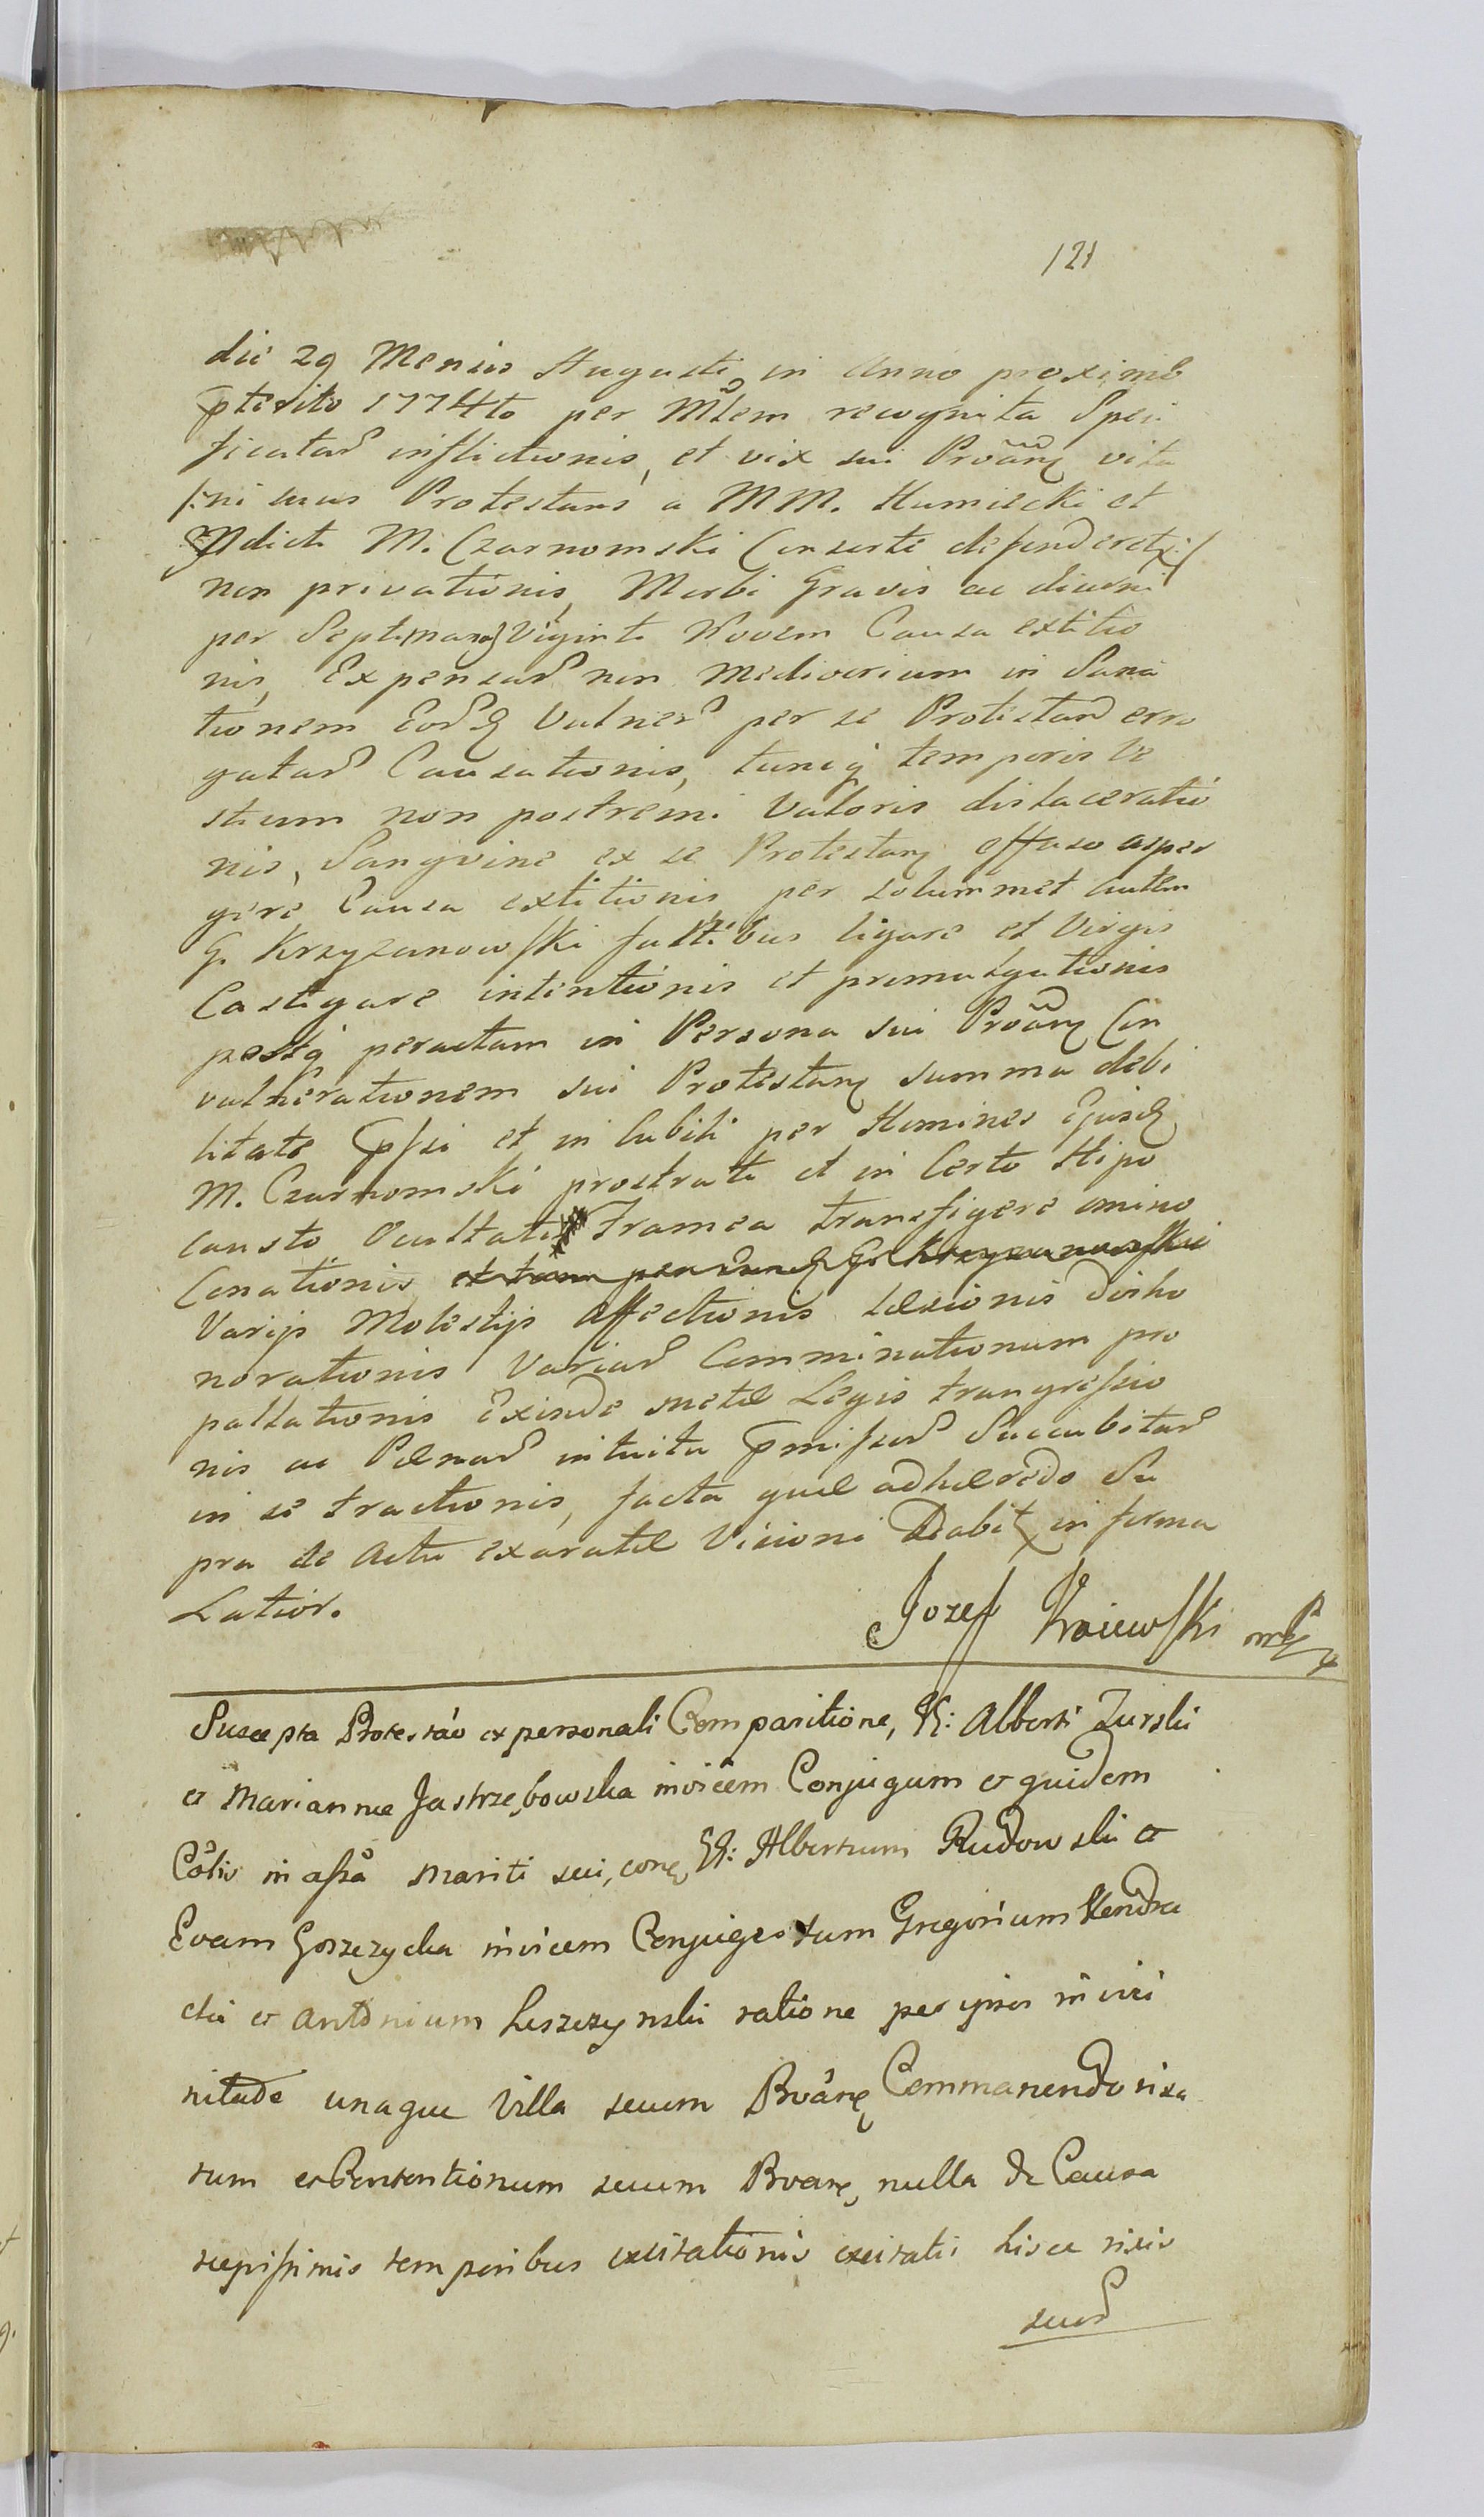 121
die 29 Mensis Augusti in Anno proxime
pterito 1774to per Mlem recognita Speci
ficatar inflictionis, et vix sui Proãnę vita
/:ni suus Protestans a MM. Humiecki et
pdicti M. Czarnomski Consorte defenderet:/
non privationis, Morbi Gravis ac diurni
per Septimanas Viginti Novem Causa extitio
nis, Expensar non mediocrium in Sana
tionem Eorq Vulner per se Protestand erro
gatar Causationis, tuncq temporis Ve
stium non postremi Valoris dislaceratio
nis, Sangvine ex se Protestanę effuso asper
gere Causa extitionis per solummet autem
G. Krzyzanowski fustibus ligare et Virgis
Castigare intentionis et promulgationis
postq peractam in Persona sui Proãnę Con
vulnerationem sui Protestanę summa debi
litate pssi et in Cubili per Homines Ejusq
M. Czarnomski prostrati et in Certo Hipo
causto Ocultati Framea transfigere omino
Conationis
Varijs Molestijs Affectionis Læsionis disho
norationis Variar Comminationum pro
pallationis Exinde metæ Legis trangressio
nis ac Pænar intuitu pmissor Succubitar
in se tractionis, facta quæ adhærendo Su
pra de Actu exaratæ Visioni Dabit in forma
Latior.
Jozef Kraiewski mp
Suscepta Protestáo ex personali Comparitione, H: Alberti Zurski
et Mariannæ Jastrzębowska invicem Conjugum et quidem
Cólis in assa Mariti sui, conę H: Albertum Rudowski et
Evam Goszczycka invicem Conjuges tum Gregorium Kendzie
cki et Antonium Leszczynski ratione per ipsos in vici
nitade unaque Villa secum Proãnę Commanendo rixa
rum et Contentionum secum Proanę nulla de Causa
sæpissimis temporibus excitationis excitatis hisce rixis
suar